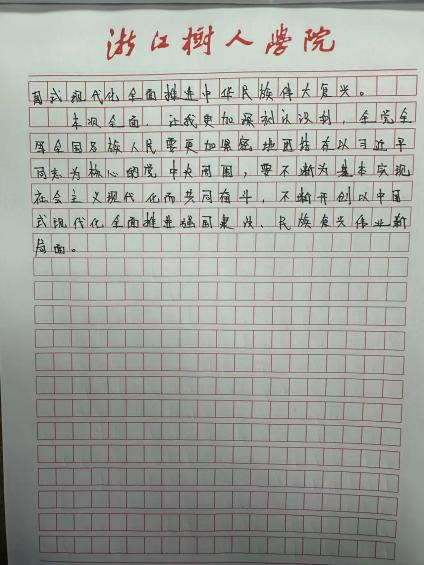 浙江樹人學院
国式现代化全面推进中华民族伟大复兴。
本次全面,让我更加深刻认识到,全党全
军全国各族人民要更加紧密地团结在以习近平
同志为核心的党中央周围,要不断为基本实现
社会主义现代化而共同奋斗,不断开创以中国
式现代化全面推进强国建设、民族复兴伟业新
局面。